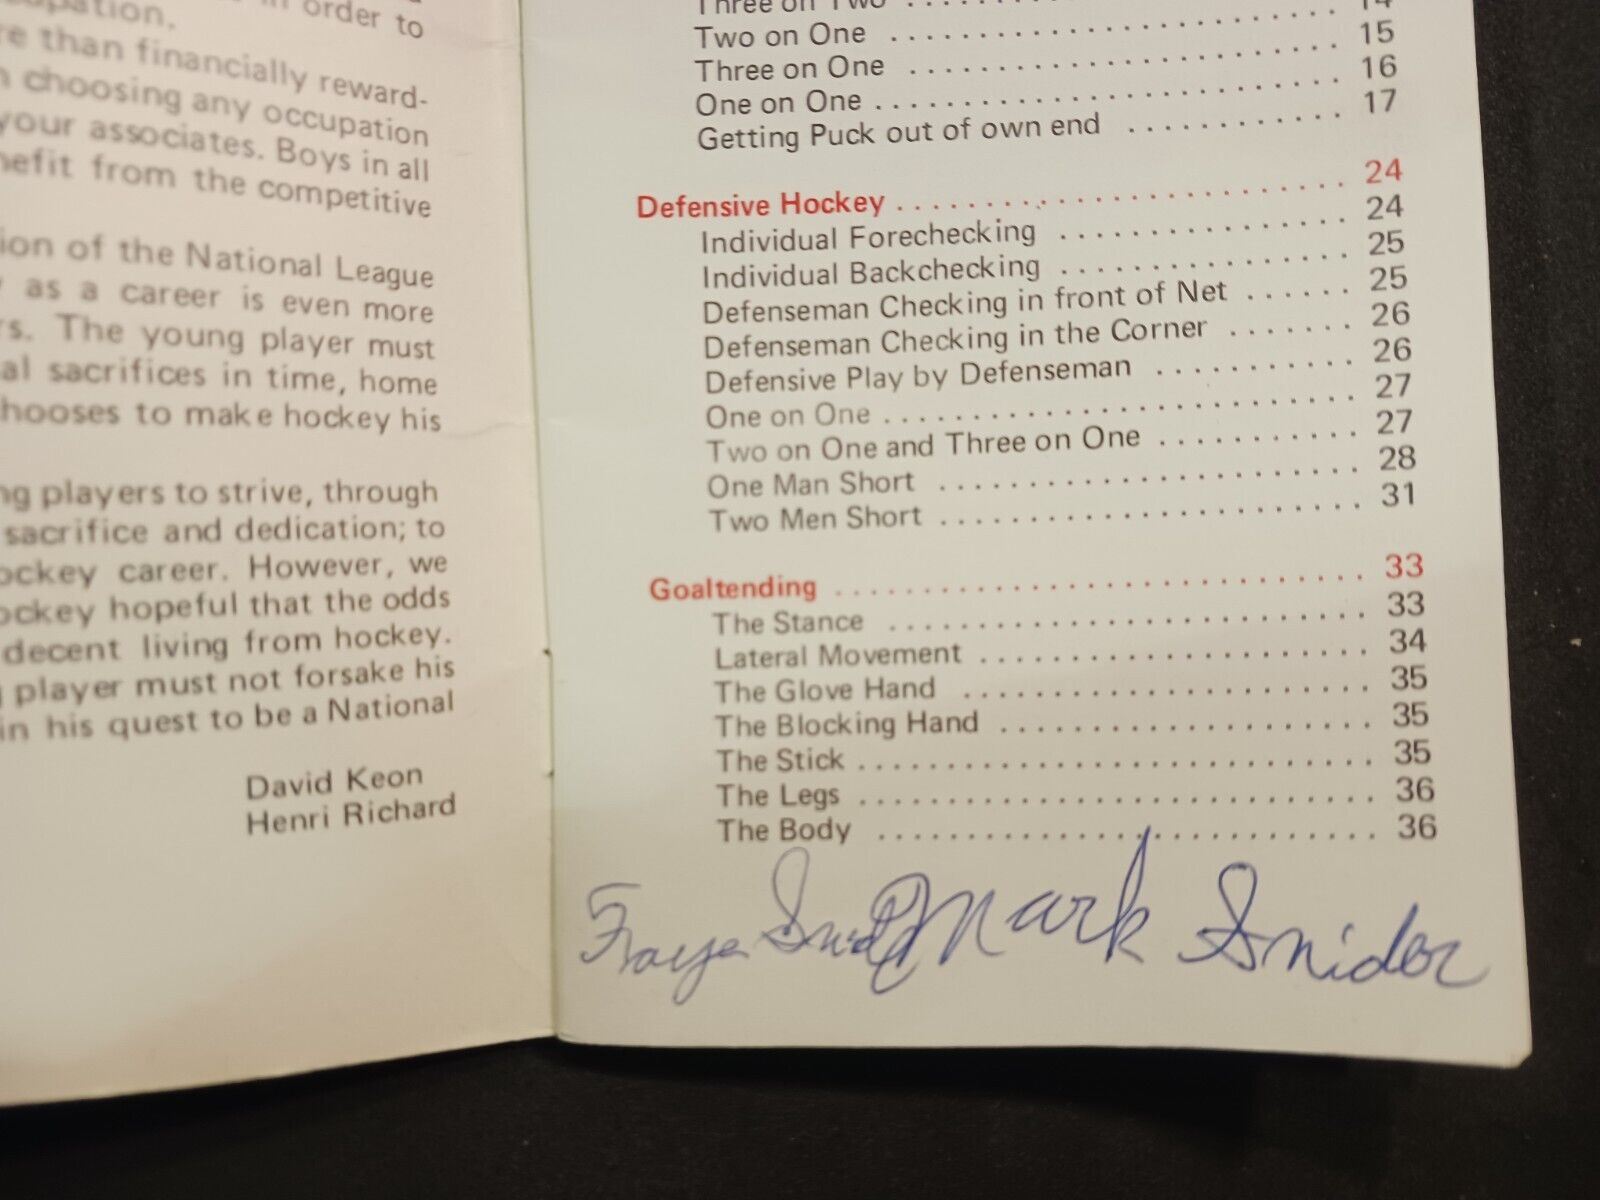 in order to
cupation.
re than financially reward-
n choosing any occupation
your associates. Boys in all
nefit from the competitive
ion of the National League
y as a career is even more
rs. The young player must
al sacrifices in time, home
hooses to make hockey his
ng players to strive, through
sacrifice and dedication; to
ockey career. However, we
ockey hopeful that the odds
decent living from hockey.
g player must not forsake his
in his quest to be a National
David Keon
Henri Richard
Three on Two . . . . . . . . . . . . . . . . . . . . . . . 14
Two on One . . . . . . . . . . . . . . . . . . . . . . . . 15
Three on One . . . . . . . . . . . . . . . . . . . . . . . 16
One on One . . . . . . . . . . . . . . . . . . . . . . . . . 17
Getting Puck out of own end . . . . . . . . . . . .
Defensive Hockey . . . . . . . . . . . . . . . . . . . . . . . . . 24
Individual Forechecking . . . . . . . . . . . . . . . . 24
Individual Backchecking . . . . . . . . . . . . . . . . 25
Defenseman Checking in front of Net . . . . . . 25
Defenseman Checking in the Corner . . . . . . . 26
Defensive Play by Defenseman . . . . . . . . . . . 26
One on One . . . . . . . . . . . . . . . . . . . . . . . . . 27
Two on One and Three on One . . . . . . . . . . . 27
One Man Short . . . . . . . . . . . . . . . . . . . . . . 28
Two Men Short . . . . . . . . . . . . . . . . . . . . . . 31
Goaltending . . . . . . . . . . . . . . . . . . . . . . . . . . . . 33
The Stance . . . . . . . . . . . . . . . . . . . . . . . . . 33
Lateral Movement . . . . . . . . . . . . . . . . . . . . 34
The Glove Hand . . . . . . . . . . . . . . . . . . . . . 35
The Blocking Hand . . . . . . . . . . . . . . . . . . . 35
The Stick . . . . . . . . . . . . . . . . . . . . . . . . . . 35
The Legs . . . . . . . . . . . . . . . . . . . . . . . . . . . 36
The Body . . . . . . . . . . . . . . . . . . . . . . . . . . 36
Mark Snider